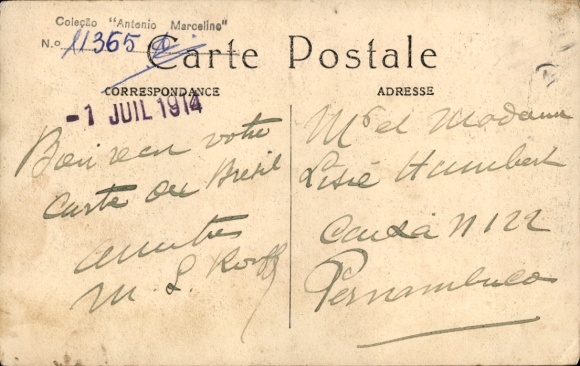 Coleção "Antonio Marcelino"
N.o 11365
Carte Postale
CORRESPONDANCE
ADRESSE
-1 JUIL 1914
Bien reçu votre
carte du Brésil
amitiés
M. L.
Mr et Madame
Humbert
Caixa N 122
Pernambuco